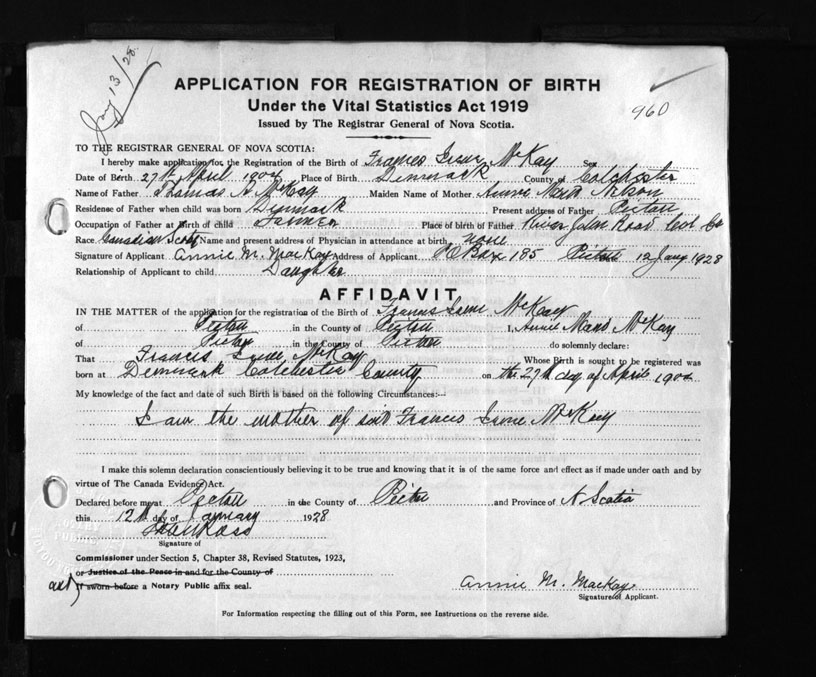 Jany 13/28.
APPLICATION FOR REGISTRATION OF BIRTH
960
Under the Vital Statistics Act 1919
Issued by The Registrar General of Nova Scotia.
TO THE REGISTRAR GENERAL OF NOVA SCOTIA:
I hereby make application for the Registration of the Birth of Frances Irene McKay Sex
Date of Birth 27th April 1904 Place of Birth Denmark County of Colchester
Name of Father Thomas A McKay Maiden Name of Mother Annie Nelson
Residence of Father when child was born Denmark Present address of Father Pictou
Occupation of Father at Birth of child Farmer Place of birth of Father River John Road Col Co
Race Canadian Scots Name and present address of Physician in attendance at birth none
Signature of Applicant Annie M. MacKay Address of Applicant P O Box 185 Pictou 12 Jany 1928
Relationship of Applicant to child Daughter
AFFIDAVIT
IN THE MATTER of the application for the registration of the Birth of Francis Irene McKay
of Pictou in the County of Pictou I, Annie McKay
of Pictou in the County of Pictou do solemnly declare:
That Francis Irene McKay Whose Birth is sought to be registered was
born at Denmark Colchester County on the 27th day of April
My knowledge of the fact and date of such Birth is based on the following Circumstances:—
I am the mother of said Francis Irene McKay
I make this solemn declaration conscientiously believing it to be true and knowing that it is of the same force and effect as if made under oath and by
virtue of The Canada Evidence Act.
Declared before me at Pictou in the County of Pictou and Province of N Scotia
this 12th day of January 1928
Signature of
Commissioner under Section 5, Chapter 38, Revised Statutes, 1923,
or Justice of the Peace in and for the County of
and If sworn before a Notary Public affix seal.
Annie M. MacKay
Signature of Applicant.
For Information respecting the filling out of this Form, see Instructions on the reverse side.